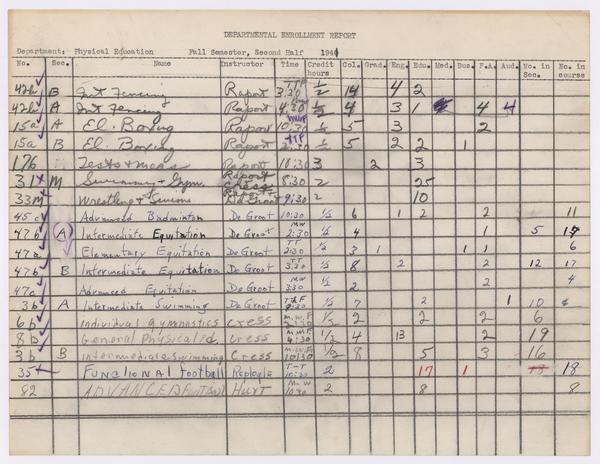 DEPARTMENTAL ENROLLMENT REPORT
Department: Physical Education Fall Semester, Second Half 194
No. Sec. Name Instructor Time Credit hours Col. Grad. Eng. Edu. Med. Bus. F.A. Aud. No. in Sec. No. in course
42b B Int Fencing Raport TTF 3:30 1/2 14 4 2
42b A Int Fencing Raport 4:30 1/2 4 3 1 4 4
15a A El. Boxing Raport MWF 10:30 1/2 5 3 2
15a B El. Boxing Raport TTF 2:30 1/2 5 2 2 1
176 Tests + meas Raport 10:30 3 2 3
31 M Swimming + Gym. Raport Cress 8:30 2 25
33M Wrestling + Swimm Raport + DeGroot 9:30 2 10
45c Advanced Badminton De Groot 10:30 1/2 6 1 2 2 11
47b A Intermediate Equitation De Groot MW 2:30 1/2 4 1 5 17
47a Elementary Equitation De Groot TT 2:30 1/2 3 1 1 1 6
47b B Intermediate Equitation De Groot TT 3:30 1/2 8 2 2 12 17
47c Advanced Equitation De Groot MW 3:30 1/2 2 2 4
3b A Intermediate Swimming De Groot 9:30 1/2 7 2 1 10
6b Individual gymnastics Cress M.W.F. 2:30 1/2 2 2 2 6
8b General Physical Cress 4:30 1/2 4 13 2 19
3b B Intermediate Swimming Cress M.W.F. 10:30 1/2 8 5 3 16
35 Functional Football Replogle T-T 10:30 2 17 1 18 18
82 ADVANCED Football Hurt M-W 10:30 2 8 8